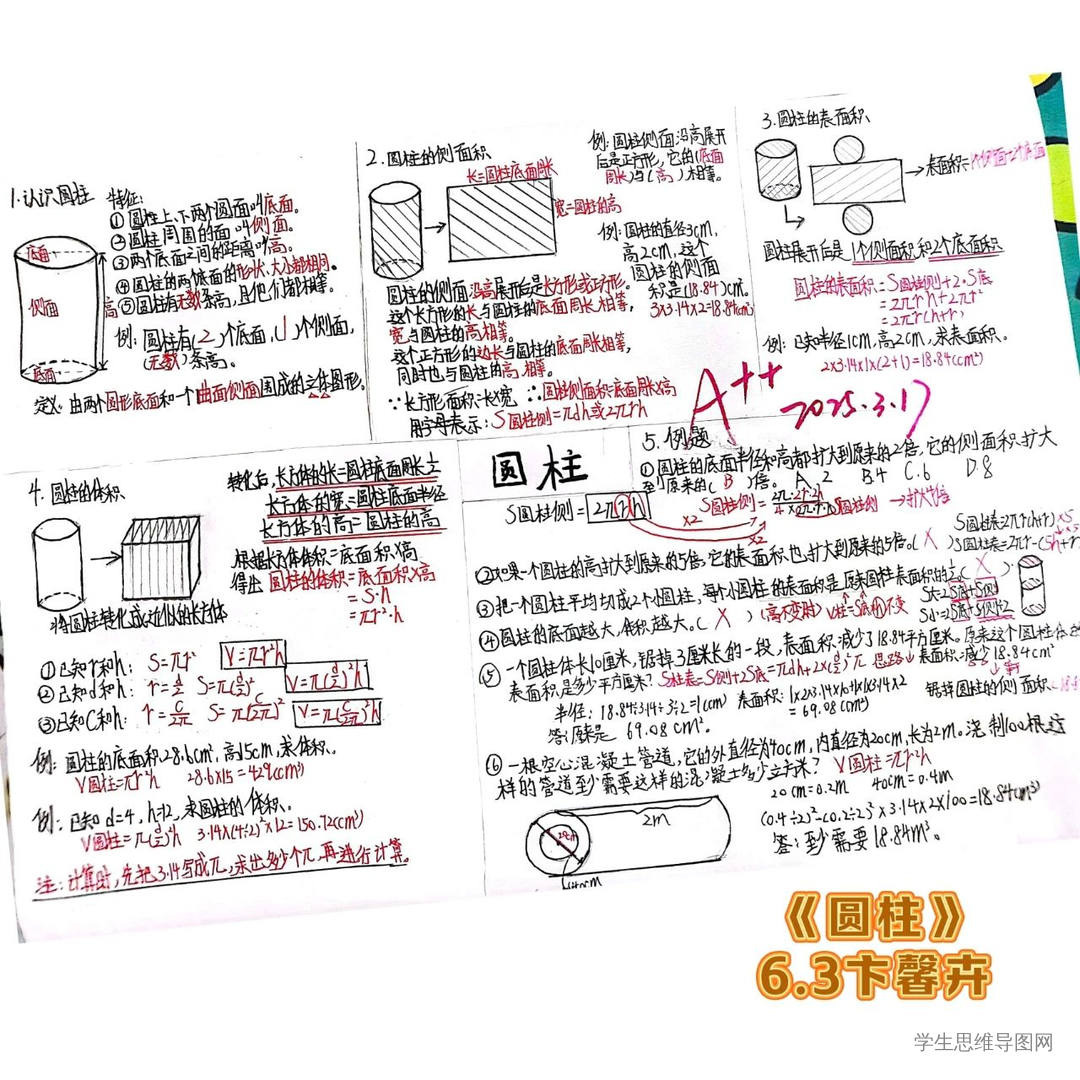 1.认识圆柱
特征:
①圆柱上、下两个圆面叫底面。
②圆柱周围的面叫侧面。
③两个底面之间的距离叫高。
④圆柱的两个底面的形状、大小都相同。
⑤圆柱有无数条高,且他们都相等。
底面
侧面
高
底面
例:圆柱有(2)个底面,(1)个侧面,
(无数)条高。
定义:由两个圆形底面和一个曲面侧面围成的立体图形。
2.圆柱的侧面积
长=圆柱底面周长
宽=圆柱的高
例:圆柱侧面沿高展开
后是正方形,它的(底面
周长)与(高)相等。
例:圆柱的直径3cm,
高2cm,这个
圆柱的侧面
积是(18.84)cm。
3×3.14×2=18.84(cm²)
圆柱的侧面沿高展开后是长方形或正方形。
这个长方形的长与圆柱的底面周长相等,
宽与圆柱的高相等。
这个正方形的边长与圆柱的底面周长相等,
同时也与圆柱的高相等。
∵长方形面积=长×宽 ∴圆柱侧面积=底面周长×高
用字母表示:S圆柱侧=πdh或2πrh
3.圆柱的表面积
表面积=1个侧面+2个底面
圆柱展开后是1个侧面积和2个底面积
圆柱的表面积=S圆柱侧+2·S底
=2πrh+2πr²
=2πr(h+r)
例:已知半径1cm,高2cm,求表面积。
2×3.14×1×(2+1)=18.84(cm²)
A++
2025.3.17
圆柱
4.圆柱的体积
转化后,长方体的长=圆柱底面周长÷2
长方体的宽=圆柱底面半径
长方体的高=圆柱的高
根据长方体体积=底面积×高
得出圆柱的体积=底面积×高
=S·h
=πr²·h
将圆柱转化成近似的长方体
①已知r和h: S=πr² V=πr²h
②已知d和h: r=d/2 S=π(d/2)² V=π(d/2)²h
③已知C和h: r=C/2π S=π(C/2π)² V=π(C/2π)²h
例:圆柱的底面积28.6cm²,高15cm,求体积。
V圆柱=πr²h 28.6×15=429(cm³)
例:已知d=4,h=12,求圆柱的体积。
V圆柱=π(d/2)²h 3.14×(4÷2)²×12=150.72(cm³)
注:计算时,先把3.14写成π,求出多少个π,再进行计算。
5.例题
①圆柱的底面半径和高都扩大到原来的2倍,它的侧面积扩大
到原来的(B)倍。 A.2 B.4 C.6 D.8
S圆柱侧=2πrh
×2
×2
②如果一个圆柱的高扩大到原来的5倍,它的表面积也扩大到原来的5倍。(X)
③把一个圆柱平均切成2个小圆柱,每个小圆柱的表面积是原来圆柱表面积的1/2(X)
④圆柱的底面越大,体积越大。(X)
⑤一个圆柱体长10厘米,锯掉3厘米长的一段,表面积减少了18.84平方厘米。原来这个圆柱体的
表面积是多少平方厘米?S柱表=S侧+2S底=πdh+2×(d/2)²π 思路↓ 表面积减少18.84cm²
锯掉圆柱的侧面积
半径:18.84÷3.14÷3÷2=1(cm)
答:原来是 69.08cm²。
⑥一根空心混凝土管道,它的外直径为40cm,内直径为20cm,长为2m。浇制100根这
样的管道至少需要这样的混凝土多少立方米?V圆柱=πr²h
20cm=0.2m 40cm=0.4m
(0.4÷2)²-(0.2÷2)²×3.14×2×100=18.84(m³)
答:至少需要18.84m³。
2m
20cm
40cm
《圆柱》
6.3卞馨卉
学生思维导图网